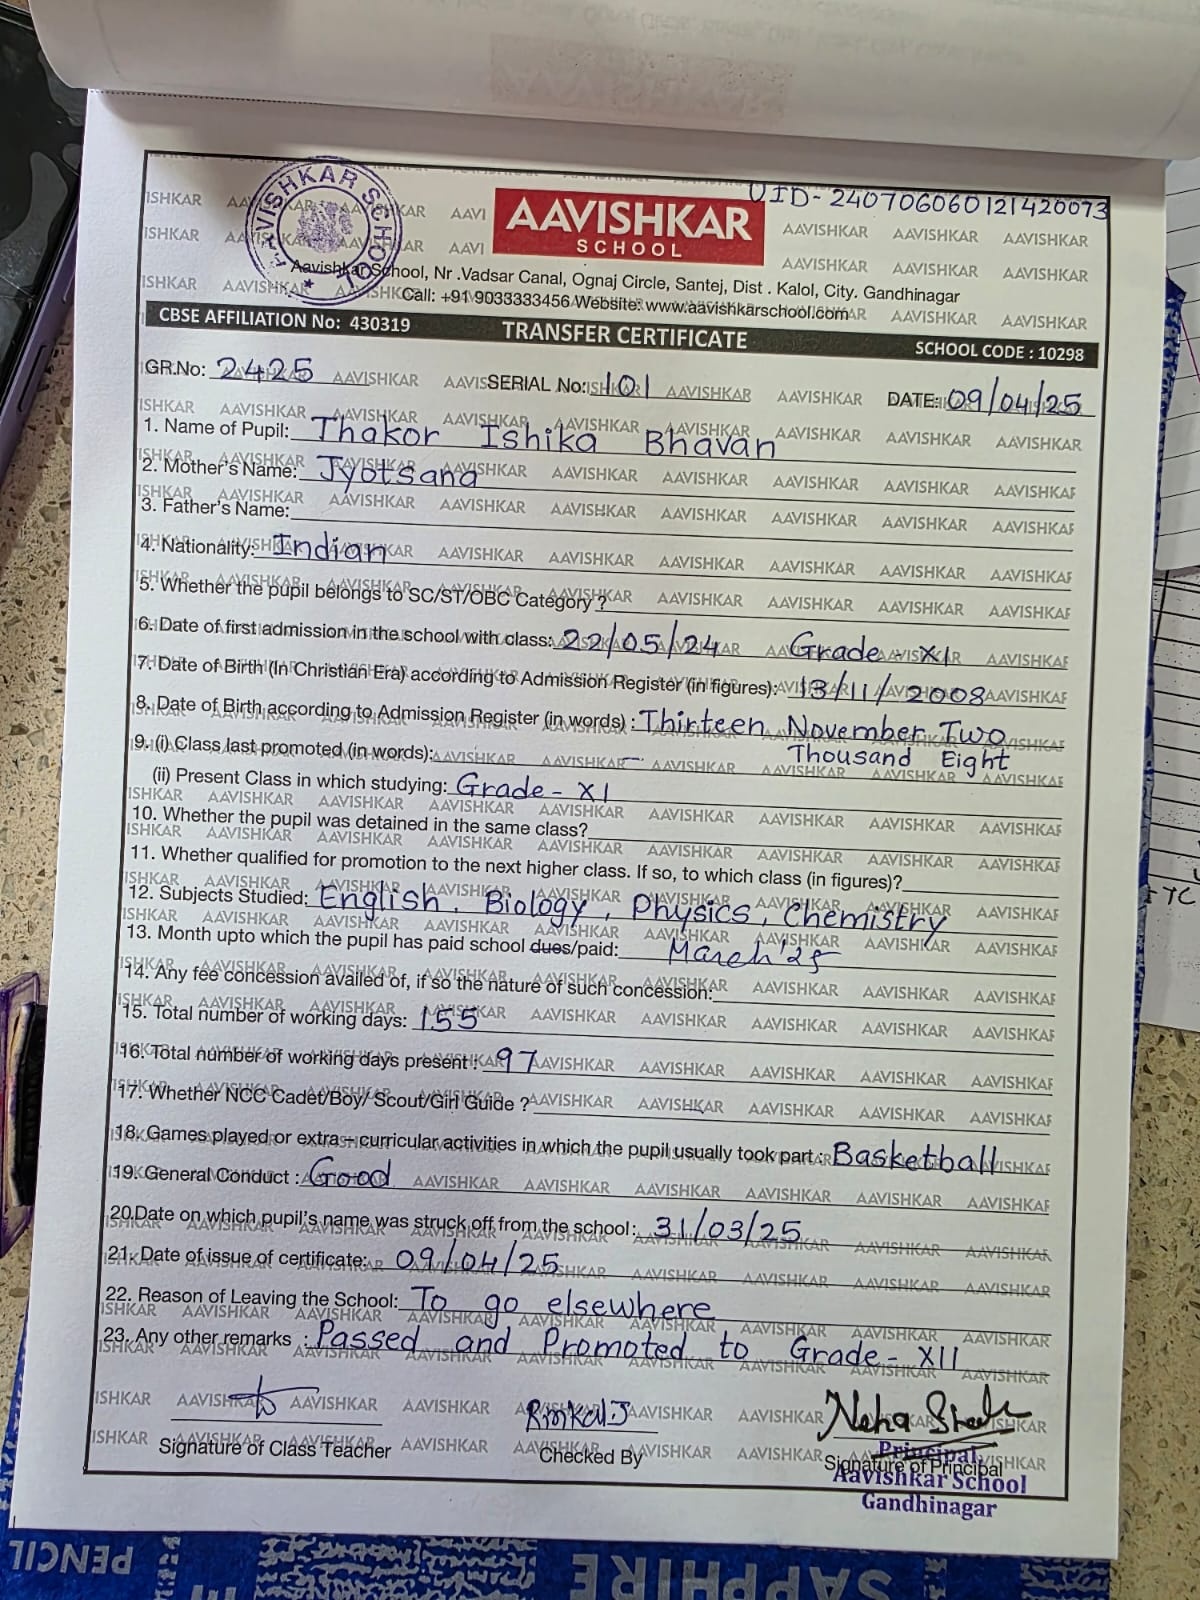 AAVISHKAR SCHOOL
UID- 240706060121420073
AAVISHKAR
SCHOOL
Aavishkar School, Nr .Vadsar Canal, Ognaj Circle, Santej, Dist . Kalol, City. Gandhinagar
Call: +91 9033333456 Website: www.aavishkarschool.com
CBSE AFFILIATION No: 430319 TRANSFER CERTIFICATE SCHOOL CODE : 10298
GR.No: 2425 SERIAL No: 101 DATE: 09/04/25
1. Name of Pupil: Thakor Ishika Bhavan
2. Mother's Name: Jyotsana
3. Father's Name:
4. Nationality: Indian
5. Whether the pupil belongs to SC/ST/OBC Category ?
6. Date of first admission in the school with class: 22/05/24 Grade - XI
7. Date of Birth (In Christian Era) according to Admission Register (in figures): 13/11/2008
8. Date of Birth according to Admission Register (in words) : Thirteen November Two
Thousand Eight
9. (i) Class last promoted (in words): -
(ii) Present Class in which studying: Grade - XI
10. Whether the pupil was detained in the same class?
11. Whether qualified for promotion to the next higher class. If so, to which class (in figures)?
12. Subjects Studied: English, Biology, Physics, Chemistry
13. Month upto which the pupil has paid school dues/paid: March'25
14. Any fee concession availed of, if so the nature of such concession:
15. Total number of working days: 155
16. Total number of working days present : 97
17. Whether NCC Cadet/Boy/ Scout/Girl Guide ?
18. Games played or extra – curricular activities in which the pupil usually took part : Basketball
19. General Conduct : Good
20.Date on which pupil's name was struck off from the school: 31/03/25
21. Date of issue of certificate: 09/04/25
22. Reason of Leaving the School: To go elsewhere
23. Any other remarks : Passed and Promoted to Grade - XII
Rinkal.J
Neha
Signature of Class Teacher Checked By Signature of Principal
Principal
Aavishkar School
Gandhinagar
PENCIL
SAPPHIRE
TC